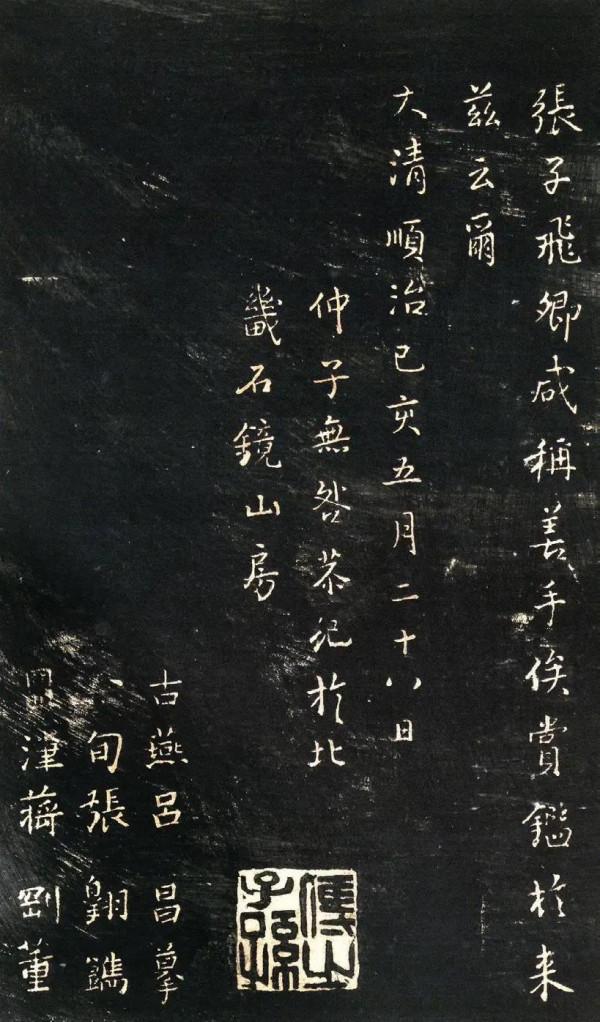 張子飛卿咸稱善手俟賞鑑於来
茲云爾
大清順治己亥五月二十八日
仲子無咎恭紀於北
畿石鏡山房
傳之子孫
古燕呂昌摹
旬張翱鐫
津蔣董